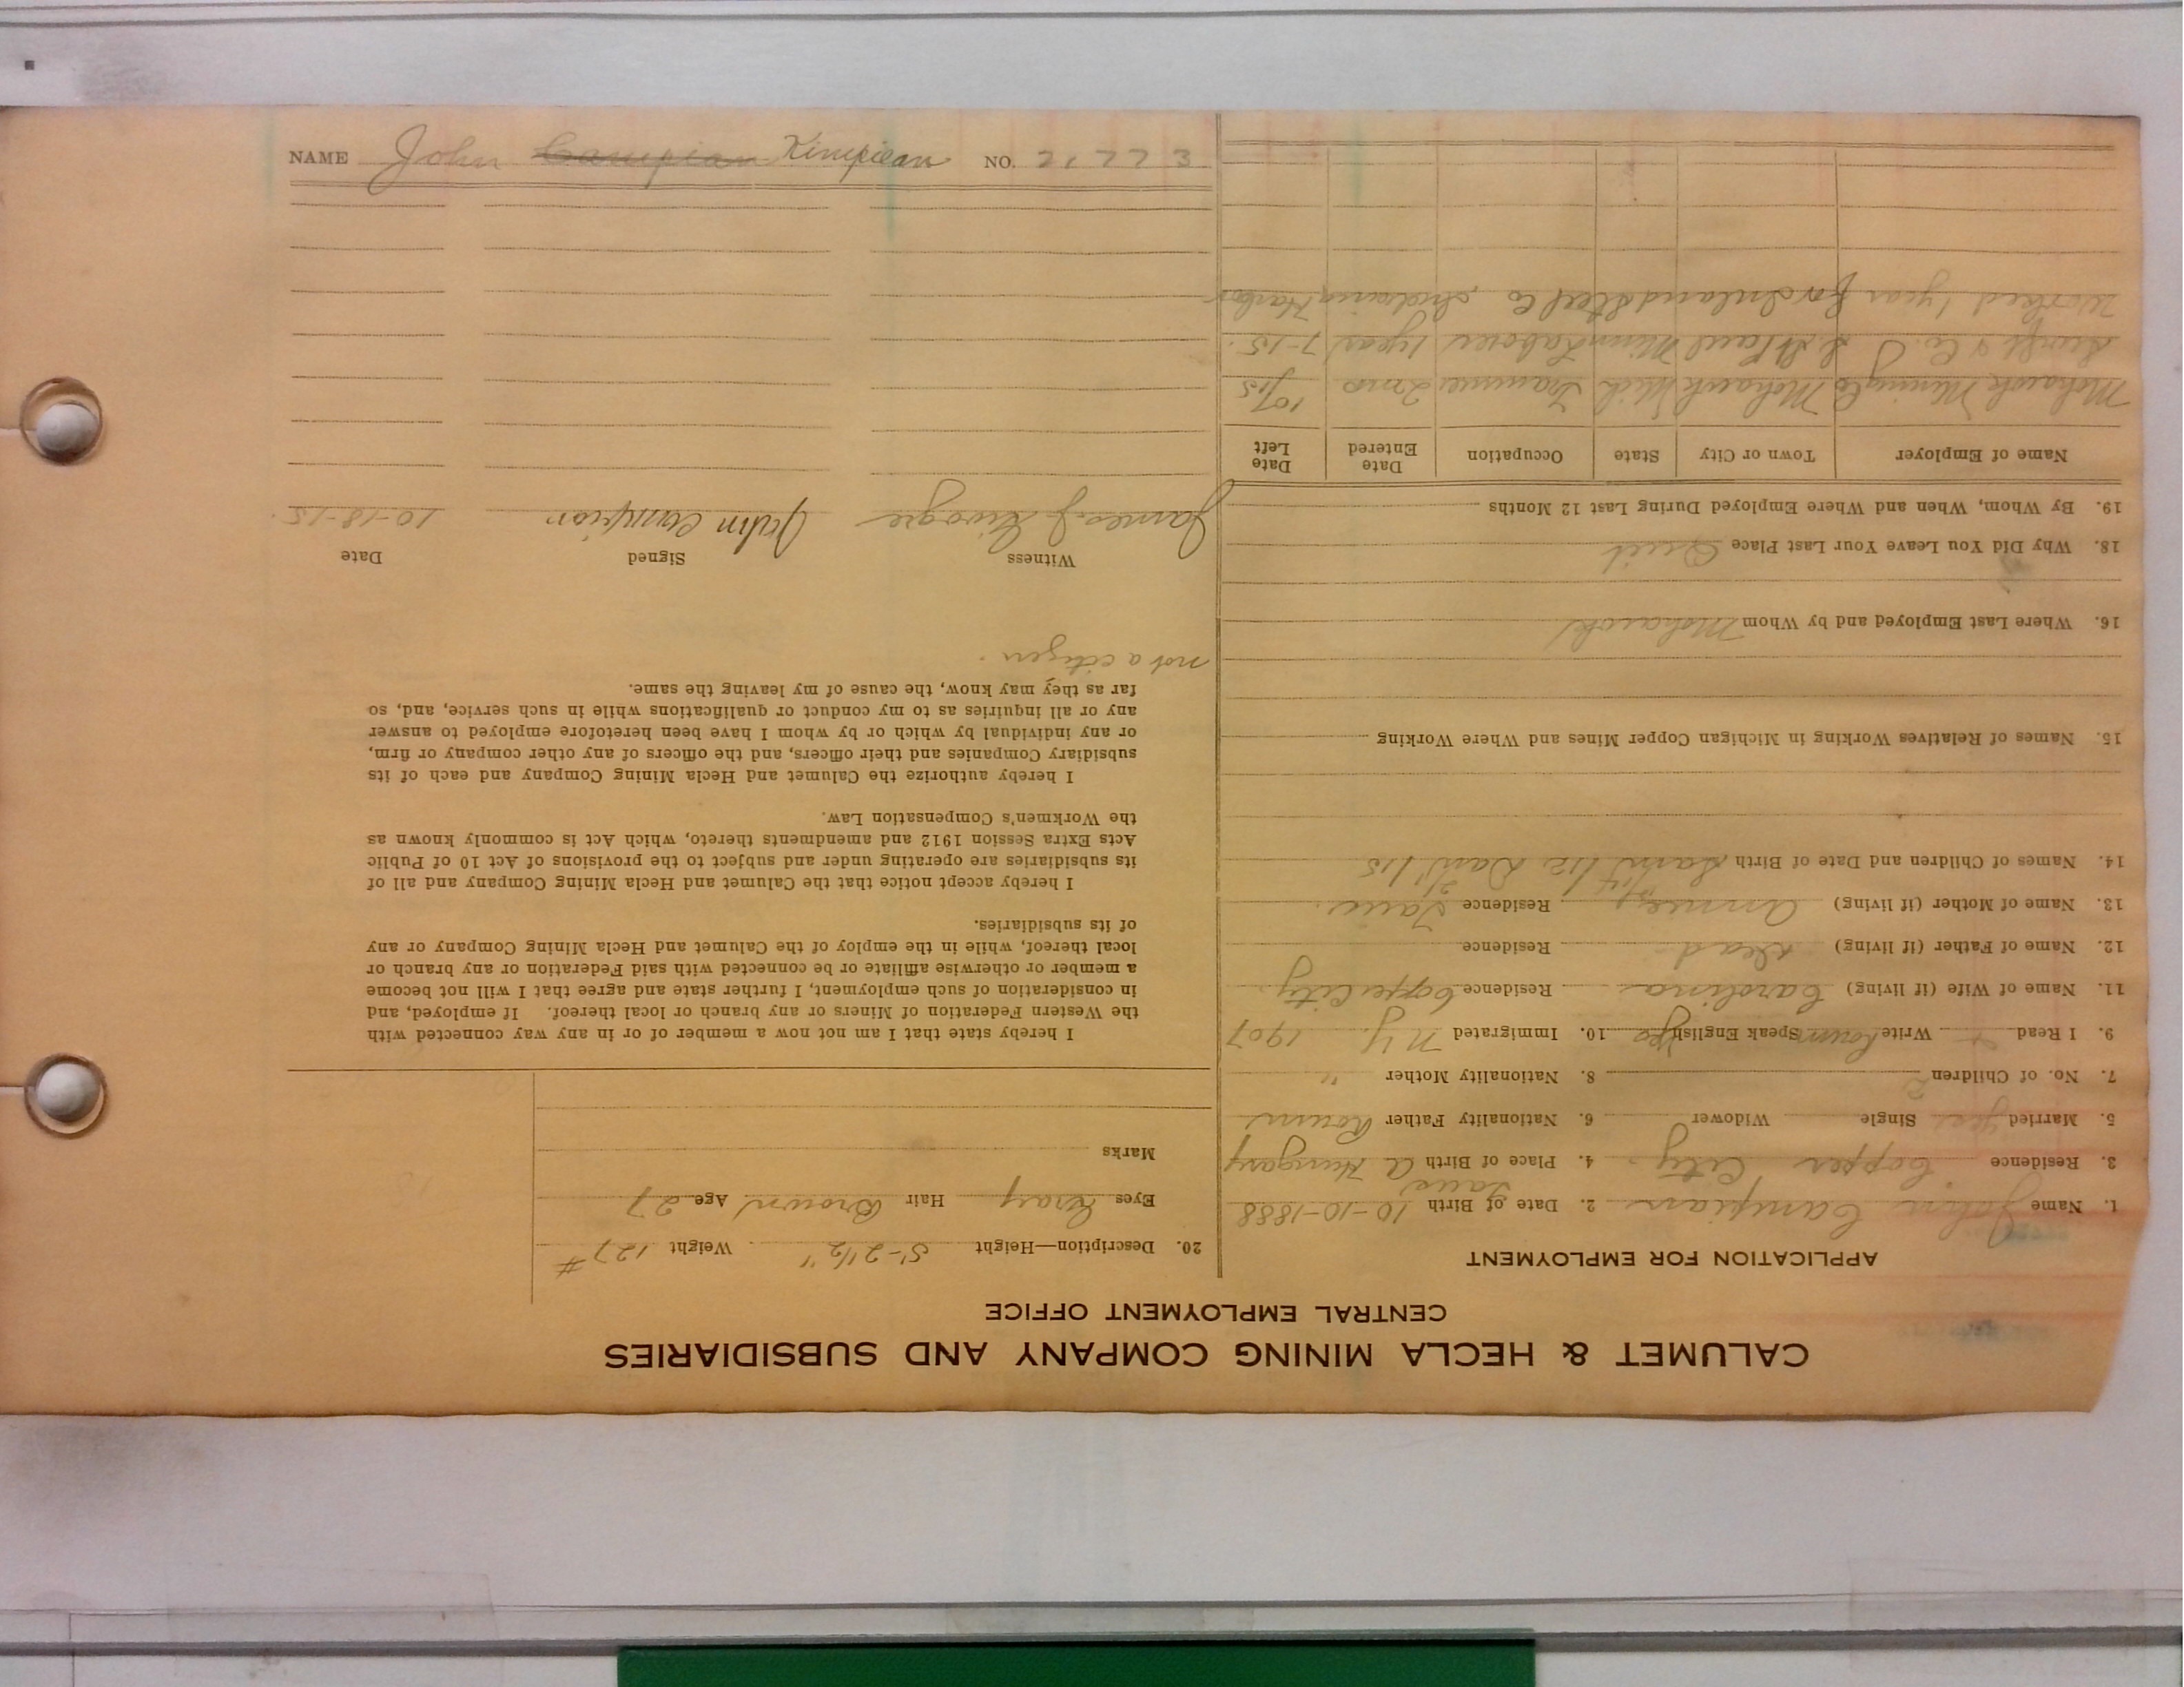 NAME John Campian Kimpican NO. 21773
CALUMET & HECLA MINING COMPANY AND SUBSIDIARIES
CENTRAL EMPLOYMENT OFFICE
APPLICATION FOR EMPLOYMENT
1. Name John Campian 2. Date of Birth 10-10-1888
3. Residence Copper City. 4. Place of Birth A Hungary
5. Married yes Single Widower 6. Nationality Father Roum
7. No. of Children 2 8. Nationality Mother "
9. I Read Write Roum Speak English yes 10. Immigrated N.Y. 1907
11. Name of Wife (if living) Carolina Residence Copper City
12. Name of Father (if living) Dead Residence
13. Name of Mother (if living) Annie Residence
14. Names of Children and Date of Birth
15. Names of Relatives Working in Michigan Copper Mines and Where Working
16. Where Last Employed and by Whom Mohawk
18. Why Did You Leave Your Last Place Quit
19. By Whom, When and Where Employed During Last 12 Months
Name of Employer Town or City State Occupation Date Entered Date Left
Mohawk Mining Co Mohawk Mich Trammer 2 mo 10/15
& Co. St Paul Minn Laborer 1 year 7-15.
Worked 1 year for Inland Steel Co Indiana Harbor
20. Description—Height 5'-2 1/2" Weight 127#
Eyes Gray Hair Brown Age 27
Marks
I hereby state that I am not now a member of or in any way connected with
the Western Federation of Miners or any branch or local thereof. If employed, and
in consideration of such employment, I further state and agree that I will not become
a member or otherwise affiliate or be connected with said Federation or any branch or
local thereof, while in the employ of the Calumet and Hecla Mining Company or any
of its subsidiaries.
I hereby accept notice that the Calumet and Hecla Mining Company and all of
its subsidiaries are operating under and subject to the provisions of Act 10 of Public
Acts Extra Session 1912 and amendments thereto, which Act is commonly known as
the Workmen's Compensation Law.
I hereby authorize the Calumet and Hecla Mining Company and each of its
subsidiary Companies and their officers, and the officers of any other company or firm,
or any individual by which or by whom I have been heretofore employed to answer
any or all inquiries as to my conduct or qualifications while in such service, and, so
far as they may know, the cause of my leaving the same.
not a citizen.
Witness Signed Date
James J. John Campian 10-18-15.